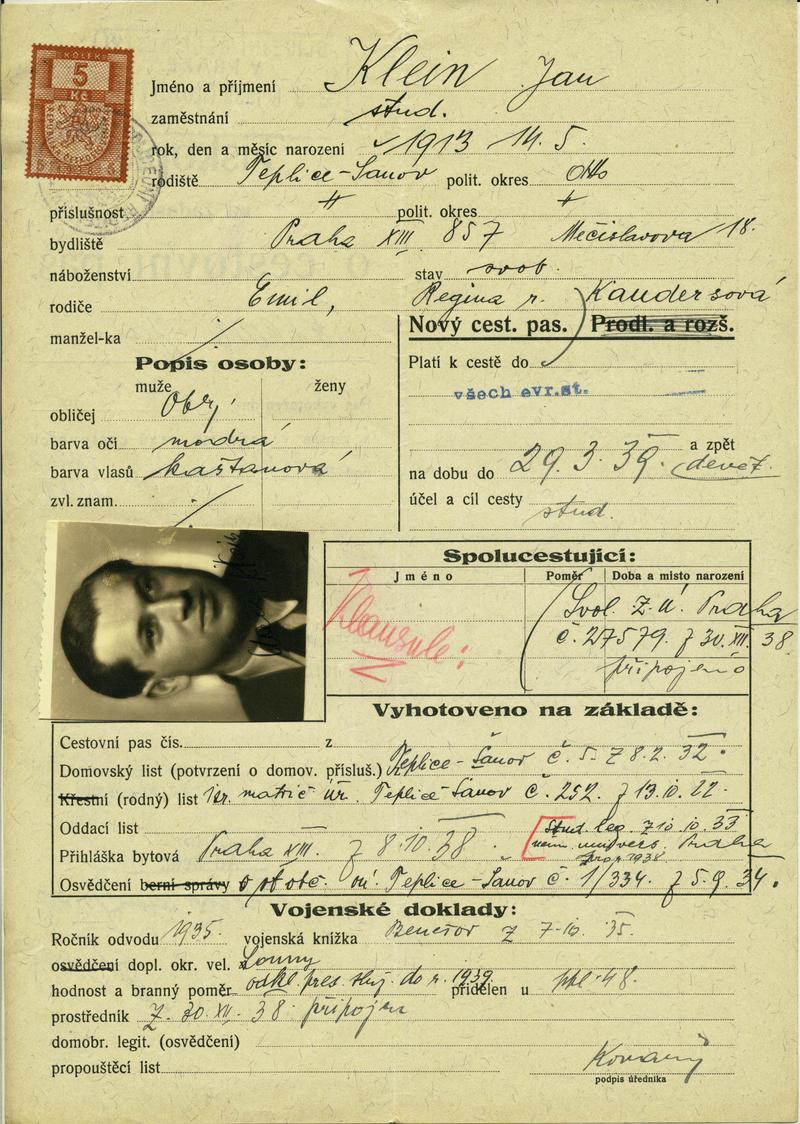 KOLEK
5
Kč
Jméno a příjmení Klein Jan
zaměstnání stud.
rok, den a měsíc narození 1913 14. 5.
rodiště Teplice-Šanov polit. okres dtto
příslušnost " polit. okres "
bydliště Praha XIII 857 Mečislavova 18.
náboženství stav svob.
rodiče Emil, Regina r. Kaudersová
manžel-ka
Nový cest. pas. Prodl. a rozš.
Popis osoby:
Platí k cestě do
muže ženy
všech evr.st.
obličej Obl.
barva očí modrá
a zpět
barva vlasů kaštanová
na dobu do 29. 3. 39. devět.
zvl. znam.
účel a cíl cesty stud.
Spolucestující:
Jméno Poměr Doba a místo narození
Klausule:
Svol. Z. Ú. Praha
č. 27579 z 30. XII. 38.
připojeno
Vyhotoveno na základě:
Cestovní pas čís. z
Domovský list (potvrzení o domov. přísluš.) Teplice-Šanov č. 5. z 8. 2. 32.
Křestní (rodný) list Isr. matrič. úř. Teplice Šanov č. 252. z 13. 10. 22.
Oddací list
Stud. leg. z 10. 10. 33
Přihláška bytová Praha XIII. z 8. 10. 38
něm. univers. Praha
pro r. 1938
Osvědčení berní správy o st. obč. Teplice-Šanov č. 1/334. z 5. 9. 34.
Vojenské doklady:
Ročník odvodu 1935. vojenská knížka Benešov z 7. 10. 35.
osvědčení dopl. okr. vel. Louny
hodnost a branný poměr odkl. pres. služ. do r. 1939 přidělen u ppl. 48.
prostředník z 30. XII. 38 připojen
domobr. legit. (osvědčení)
propouštěcí list
podpis úředníka